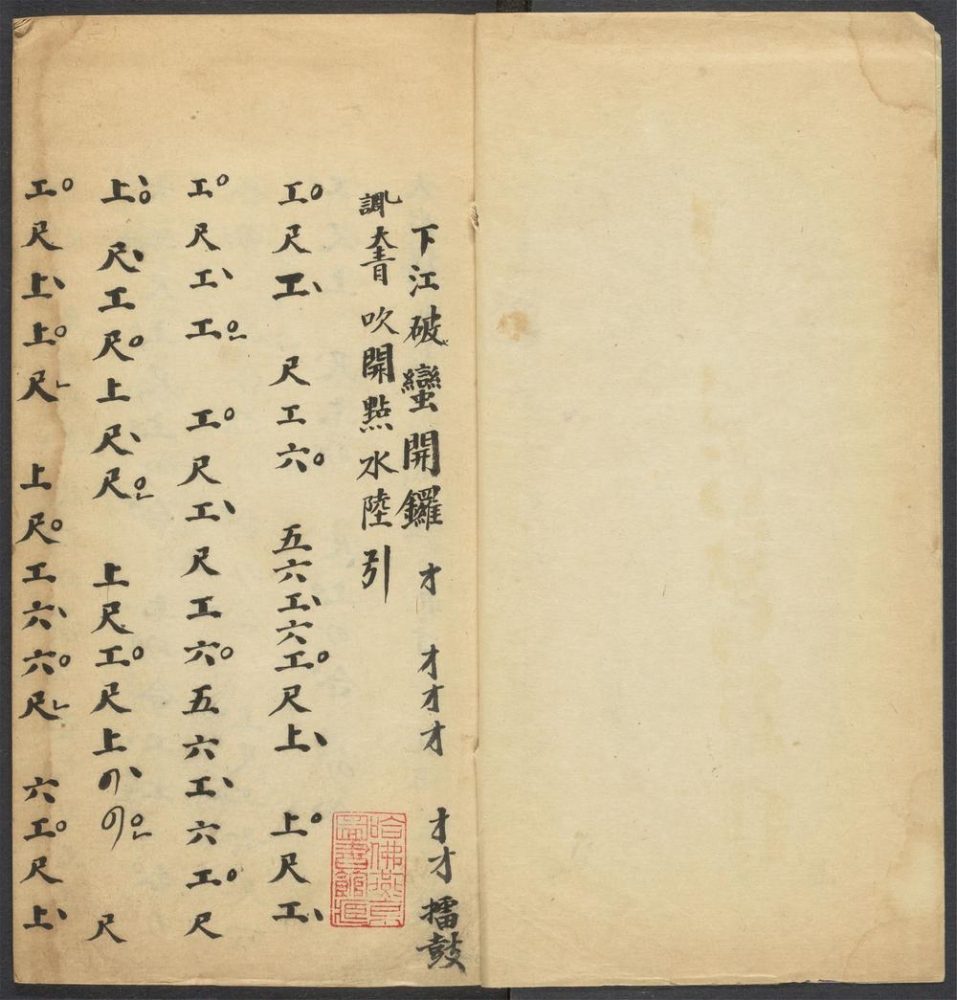 下江破蠻開鑼 才 才才才 才才擂鼓
大青 吹開點水陸引
工尺工 尺工六 五六工六工尺上 上尺工
工尺工工 工尺工尺工六五六工六工尺
上尺工尺上尺尺 上尺工尺上のの 尺
工尺上上尺 上尺工六六尺 六工尺上
哈佛燕京
圖書館印